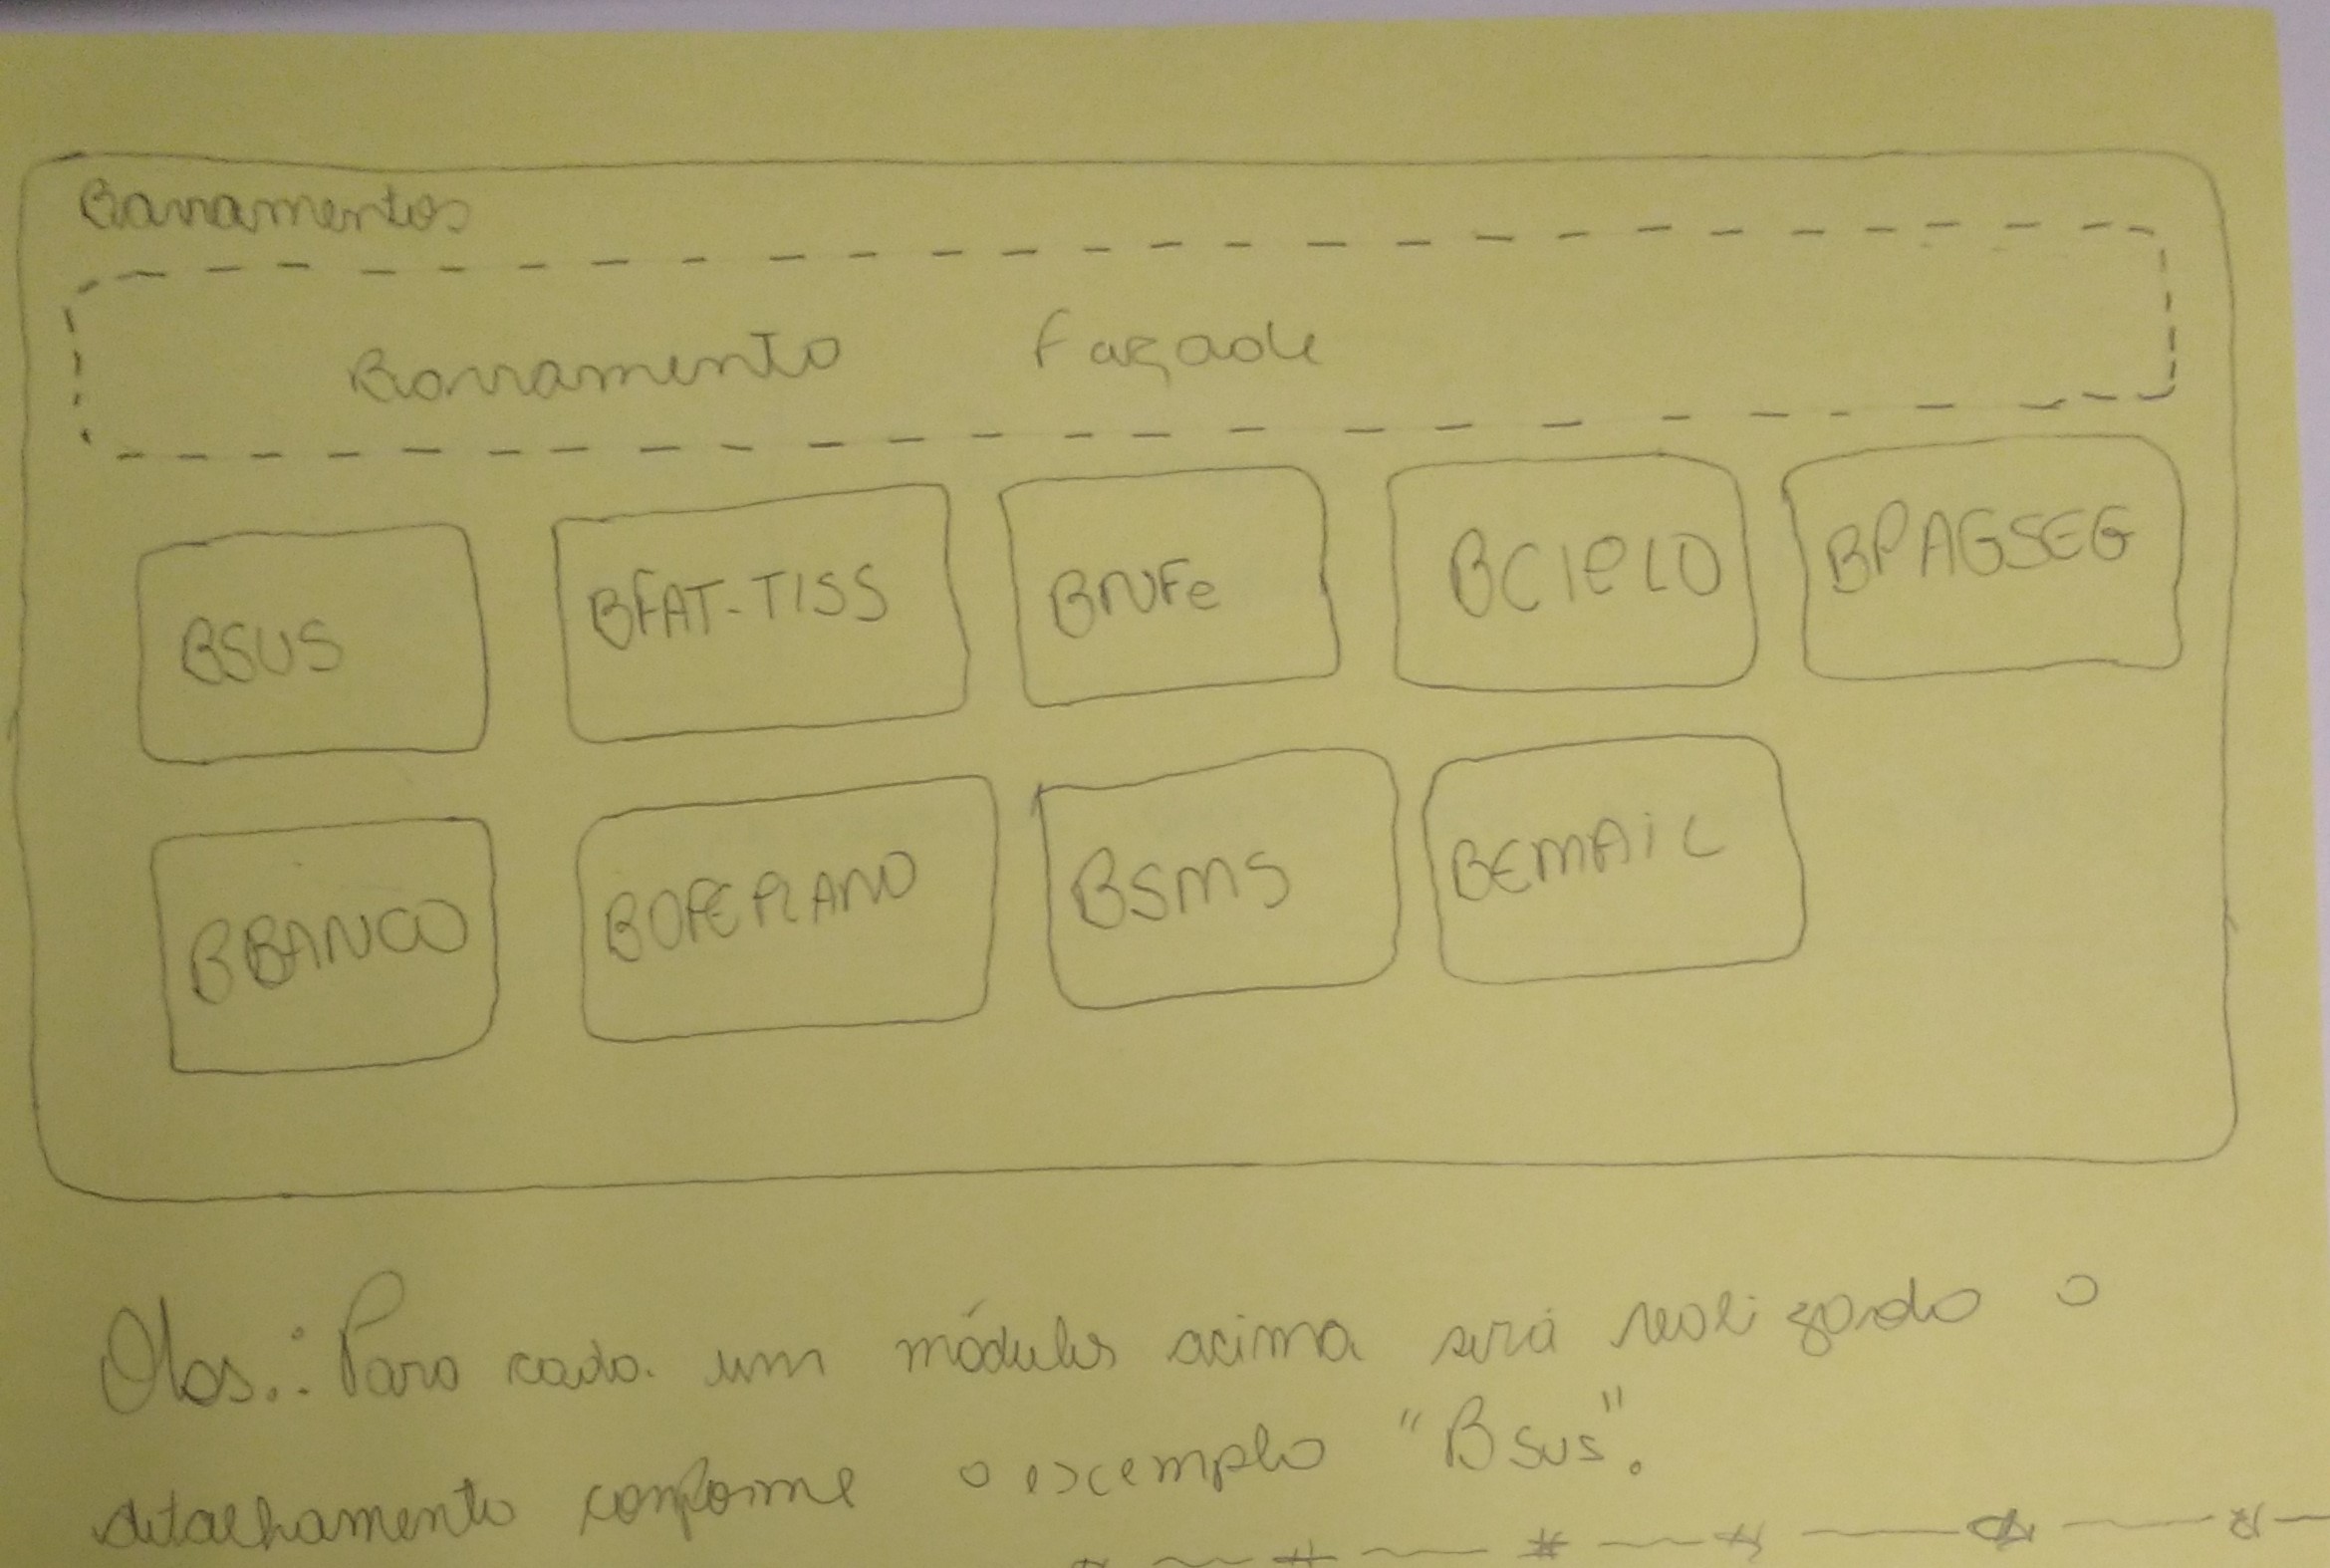 Barramentos
Barramento Façade
BSUS BFAT-TISS BNFe BCIELO BPAGSEG
BBANCO BOPEPLANO BSMS BEMAIL
Obs.: Para cada um módulos acima será realizado o
detalhamento conforme o exemplo "Bsus".